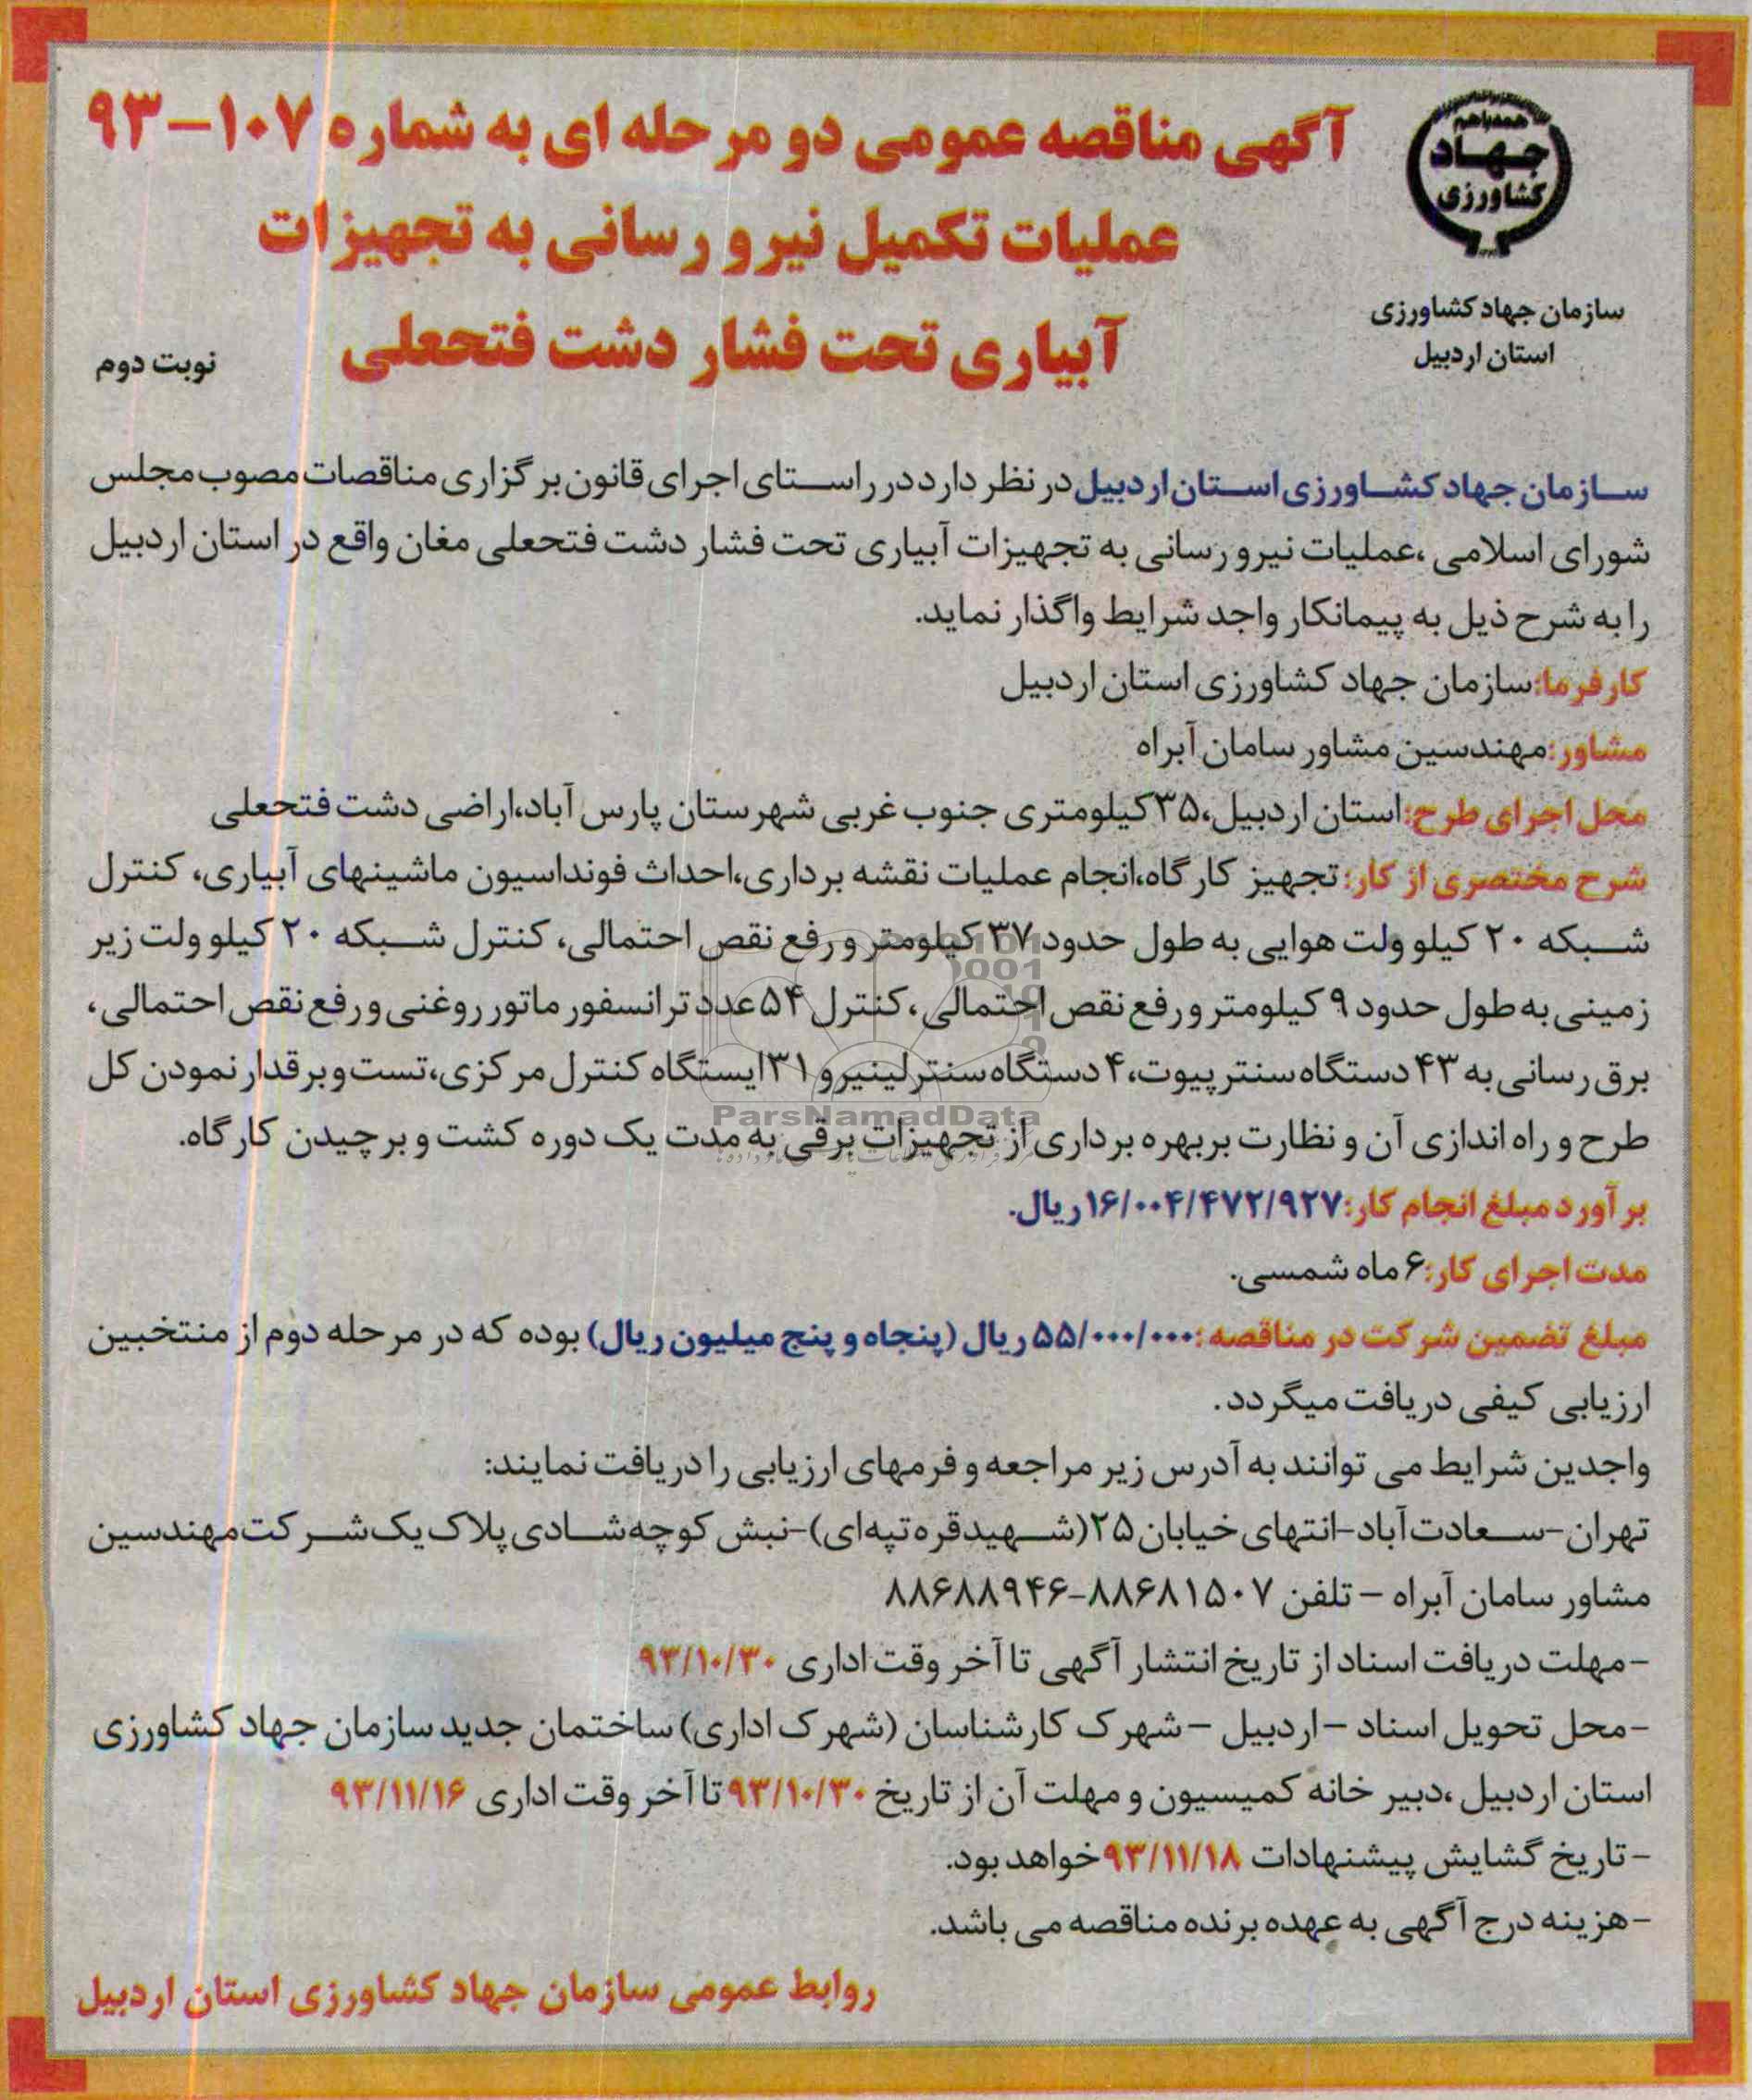 آگهی مناقصه عمومی دو مرحله ای به شماره ۱۰۷-۹۳
عملیات تکمیل نیرو رسانی به تجهیزات
آبیاری تحت فشار دشت فتحعلی
همه با هم
جهاد
کشاورزی
سازمان جهاد کشاورزی
استان اردبیل
نوبت دوم
سازمان جهاد کشاورزی استان اردبیل در نظر دارد در راستای اجرای قانون برگزاری مناقصات مصوب مجلس
شورای اسلامی ،عملیات نیرو رسانی به تجهیزات آبیاری تحت فشار دشت فتحعلی مغان واقع در استان اردبیل
را به شرح ذیل به پیمانکار واجد شرایط واگذار نماید.
کارفرما:سازمان جهاد کشاورزی استان اردبیل
مشاور:مهندسین مشاور سامان آبراه
محل اجرای طرح:استان اردبیل،۳۵کیلومتری جنوب غربی شهرستان پارس آباد،اراضی دشت فتحعلی
شرح مختصری از کار: تجهیز کارگاه،انجام عملیات نقشه برداری،احداث فونداسیون ماشینهای آبیاری، کنترل
شبکه ۲۰ کیلو ولت هوایی به طول حدود ۳۷ کیلومتر و رفع نقص احتمالی، کنترل شبکه ۲۰ کیلو ولت زیر
زمینی به طول حدود ۹ کیلومتر و رفع نقص احتمالی، کنترل ۵۴ عدد ترانسفورماتور روغنی و رفع نقص احتمالی،
برق رسانی به ۴۳ دستگاه سنترپیوت،۴ دستگاه سنترلینیر و ۳۱ ایستگاه کنترل مرکزی،تست و برقدار نمودن کل
طرح و راه اندازی آن و نظارت بر بهره برداری از تجهیزات برقی به مدت یک دوره کشت و برچیدن کارگاه.
برآورد مبلغ انجام کار:۱۶/۰۰۴/۴۷۲/۹۲۷ریال.
مدت اجرای کار:۶ ماه شمسی.
مبلغ تضمین شرکت در مناقصه:۵۵/۰۰۰/۰۰۰ ریال (پنجاه و پنج میلیون ریال) بوده که در مرحله دوم از منتخبین
ارزیابی کیفی دریافت میگردد.
واجدین شرایط می توانند به آدرس زیر مراجعه و فرمهای ارزیابی را دریافت نمایند:
تهران-سعادت آباد-انتهای خیابان ۲۵(شهید قره تپه ای)-نبش کوچه شادی پلاک یک شرکت مهندسین
مشاور سامان آبراه - تلفن ۸۸۶۸۱۵۰۷-۸۸۶۸۸۹۴۶
-مهلت دریافت اسناد از تاریخ انتشار آگهی تا آخر وقت اداری ۹۳/۱۰/۳۰
-محل تحویل اسناد -اردبیل - شهرک کارشناسان (شهرک اداری) ساختمان جدید سازمان جهاد کشاورزی
استان اردبیل ،دبیر خانه کمیسیون و مهلت آن از تاریخ ۹۳/۱۰/۳۰ تا آخر وقت اداری ۹۳/۱۱/۱۶
-تاریخ گشایش پیشنهادات ۹۳/۱۱/۱۸ خواهد بود.
-هزینه درج آگهی به عهده برنده مناقصه می باشد.
روابط عمومی سازمان جهاد کشاورزی استان اردبیل
ParsNamadData